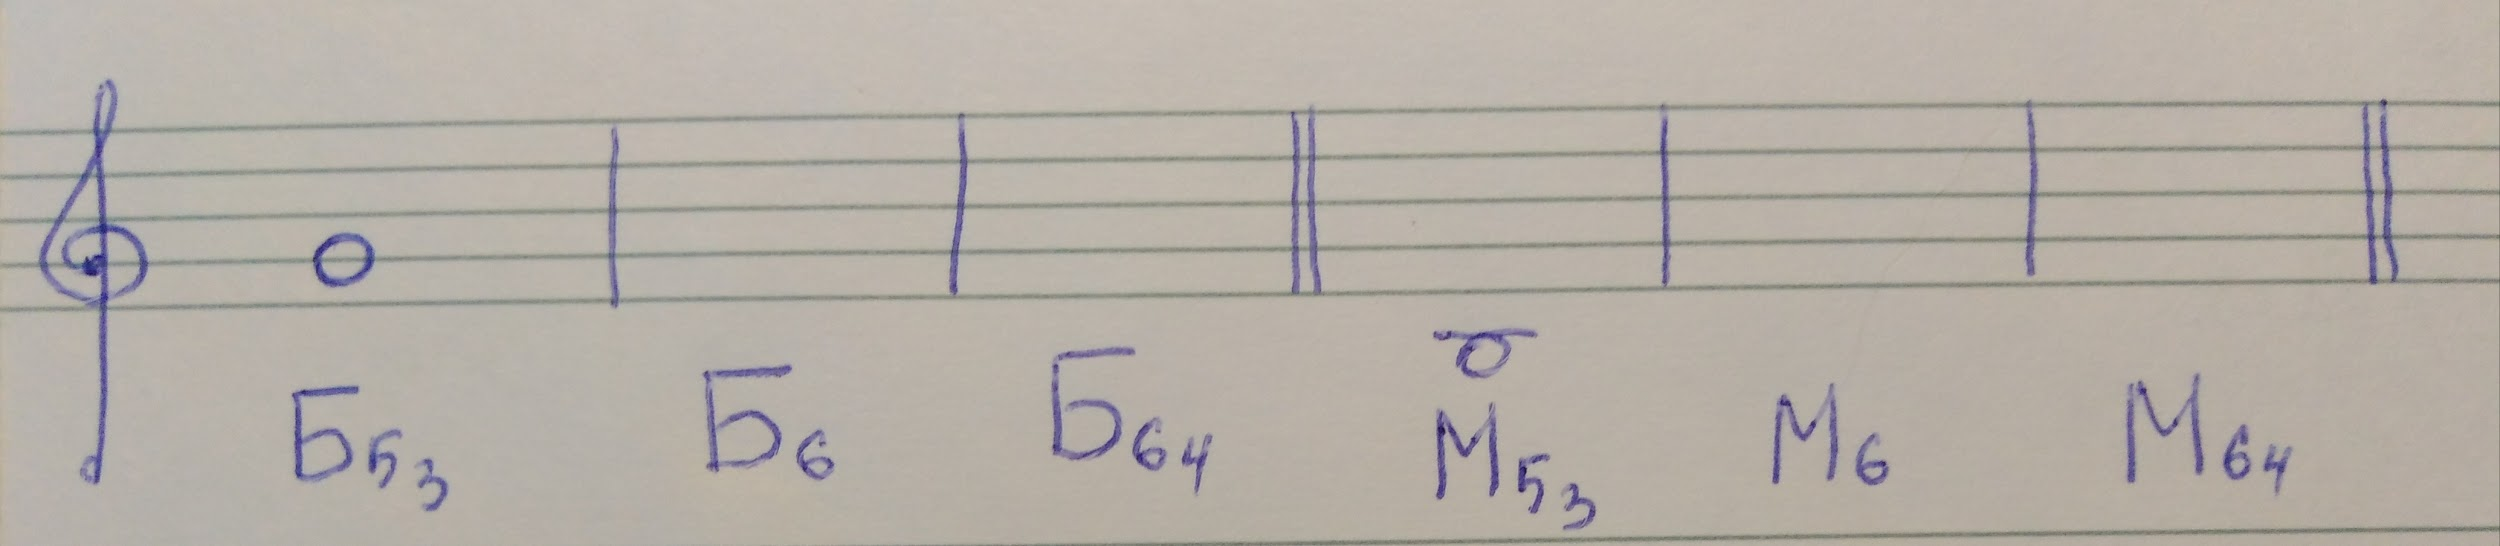 Б53 Б6 Б64 М53 М6 М64